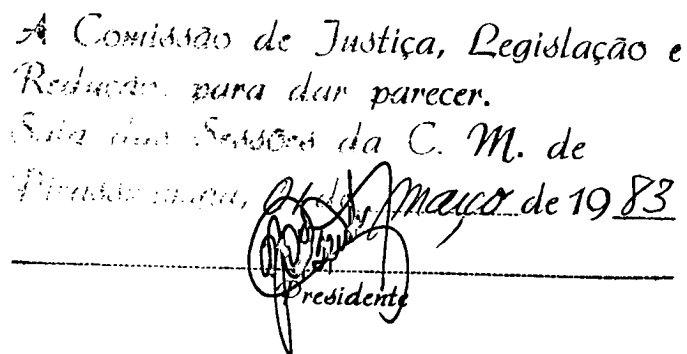 A Comissão de Justiça, Legislação e
Redução, para dar parecer.
Sala das Sessões da C. M. de
Pirassununga, de março de 1983
Presidente